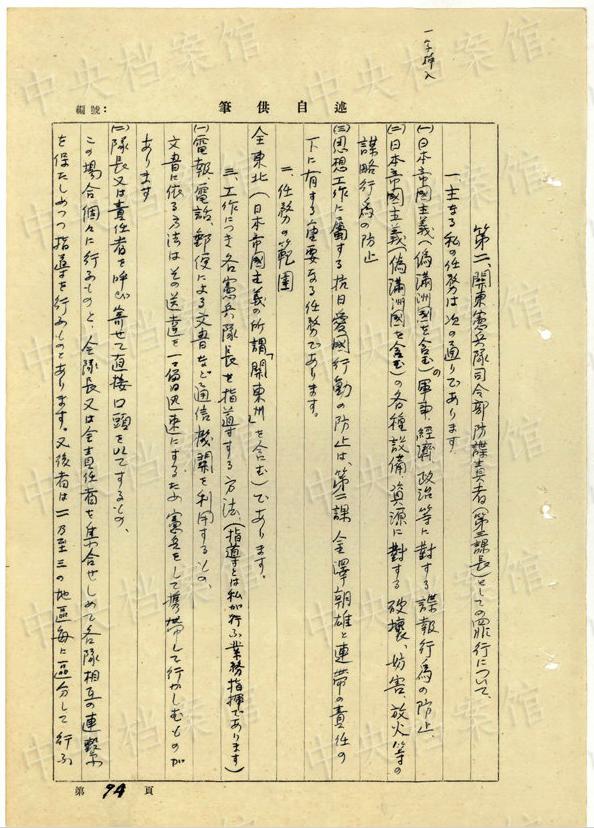 一字挿入
編號：
述自供筆
第二、関東憲兵隊司令部防諜責者(第三課長)としての罪行について、
一、主なる私の任務は次の通りであります
(一)日本帝國主義(偽満洲國を含む)の軍事、経済、政治等に對する諜報行為の防止、
(二)日本帝國主義(偽満洲國を含む)の各種設備、資源に對する破壊、妨害、放火等の
謀略行為の防止
(三)思想工作に属する抗日愛國行動の防止は、第二課 金澤朝雄と連帯の責任の
下に有する重要なる任務であります。
二、任務の範囲
全東北(日本帝國主義の所謂「関東州」を含む)であります。
三、工作につき各憲兵隊長を指導する方法(指導とは私が行ふ業務指揮であります)
(一)電報、電話、郵便による文書など通信機関を利用するもの、
文書に依る方法はその送達を一層迅速にするため憲兵をして携帯して行かしむものが
あります
(二)隊長又は責任者を呼び寄せて直接口頭を以てするもの、
この場合個々に行ふものと、全隊長又は全責任者を集合せしめて各隊相互の連繋
を保たしめつつ指導を行ふものとあります。又後者は二乃至三の地區毎に區分して行ふ
第 94 頁
中央档案馆